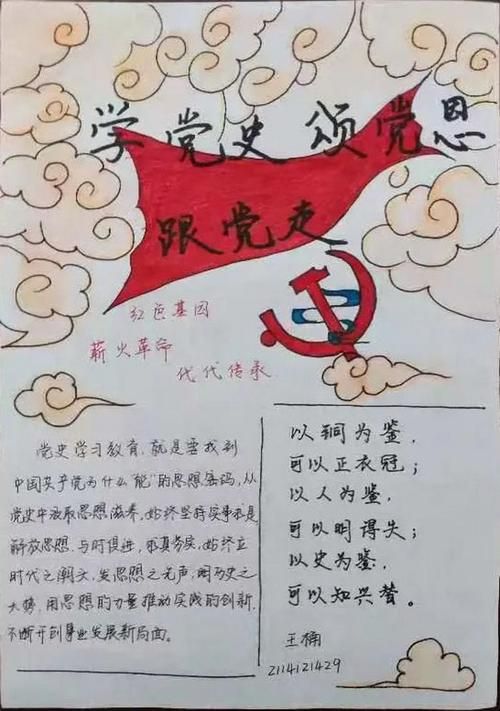 学党史 颂党恩
跟党走
红色基因
薪火革命
代代传承
党史学习教育，就是要找到
中国共产党为什么"能"的思想密码，从
党史中汲取思想滋养，始终坚持实事求是
解放思想、与时俱进，求真务实，始终立
时代之潮头，发思想之先声，阔历史之
大势，用思想的力量推动实践的创新，
不断开创事业发展新局面。
以铜为鉴，
可以正衣冠；
以人为鉴，
可以明得失；
以史为鉴，
可以知兴替。
王楠
2114121429